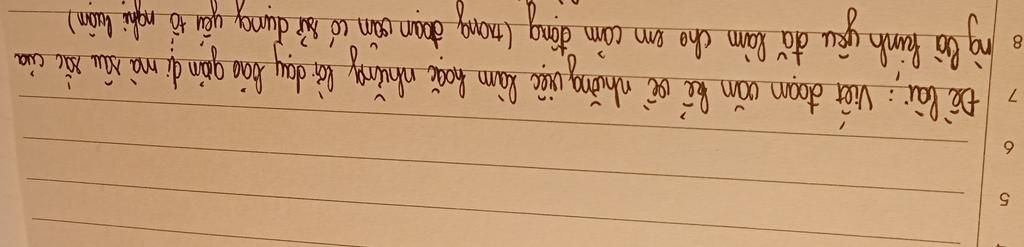 7 Đề bài: Viết đoạn văn kể về những việc làm hoặc những lời dạy bảo giản dị mà sâu sắc của
8 ng bà kính yêu đã làm cho em cảm động (trong đoạn văn có sử dụng yếu tố nghị luận)
6
5